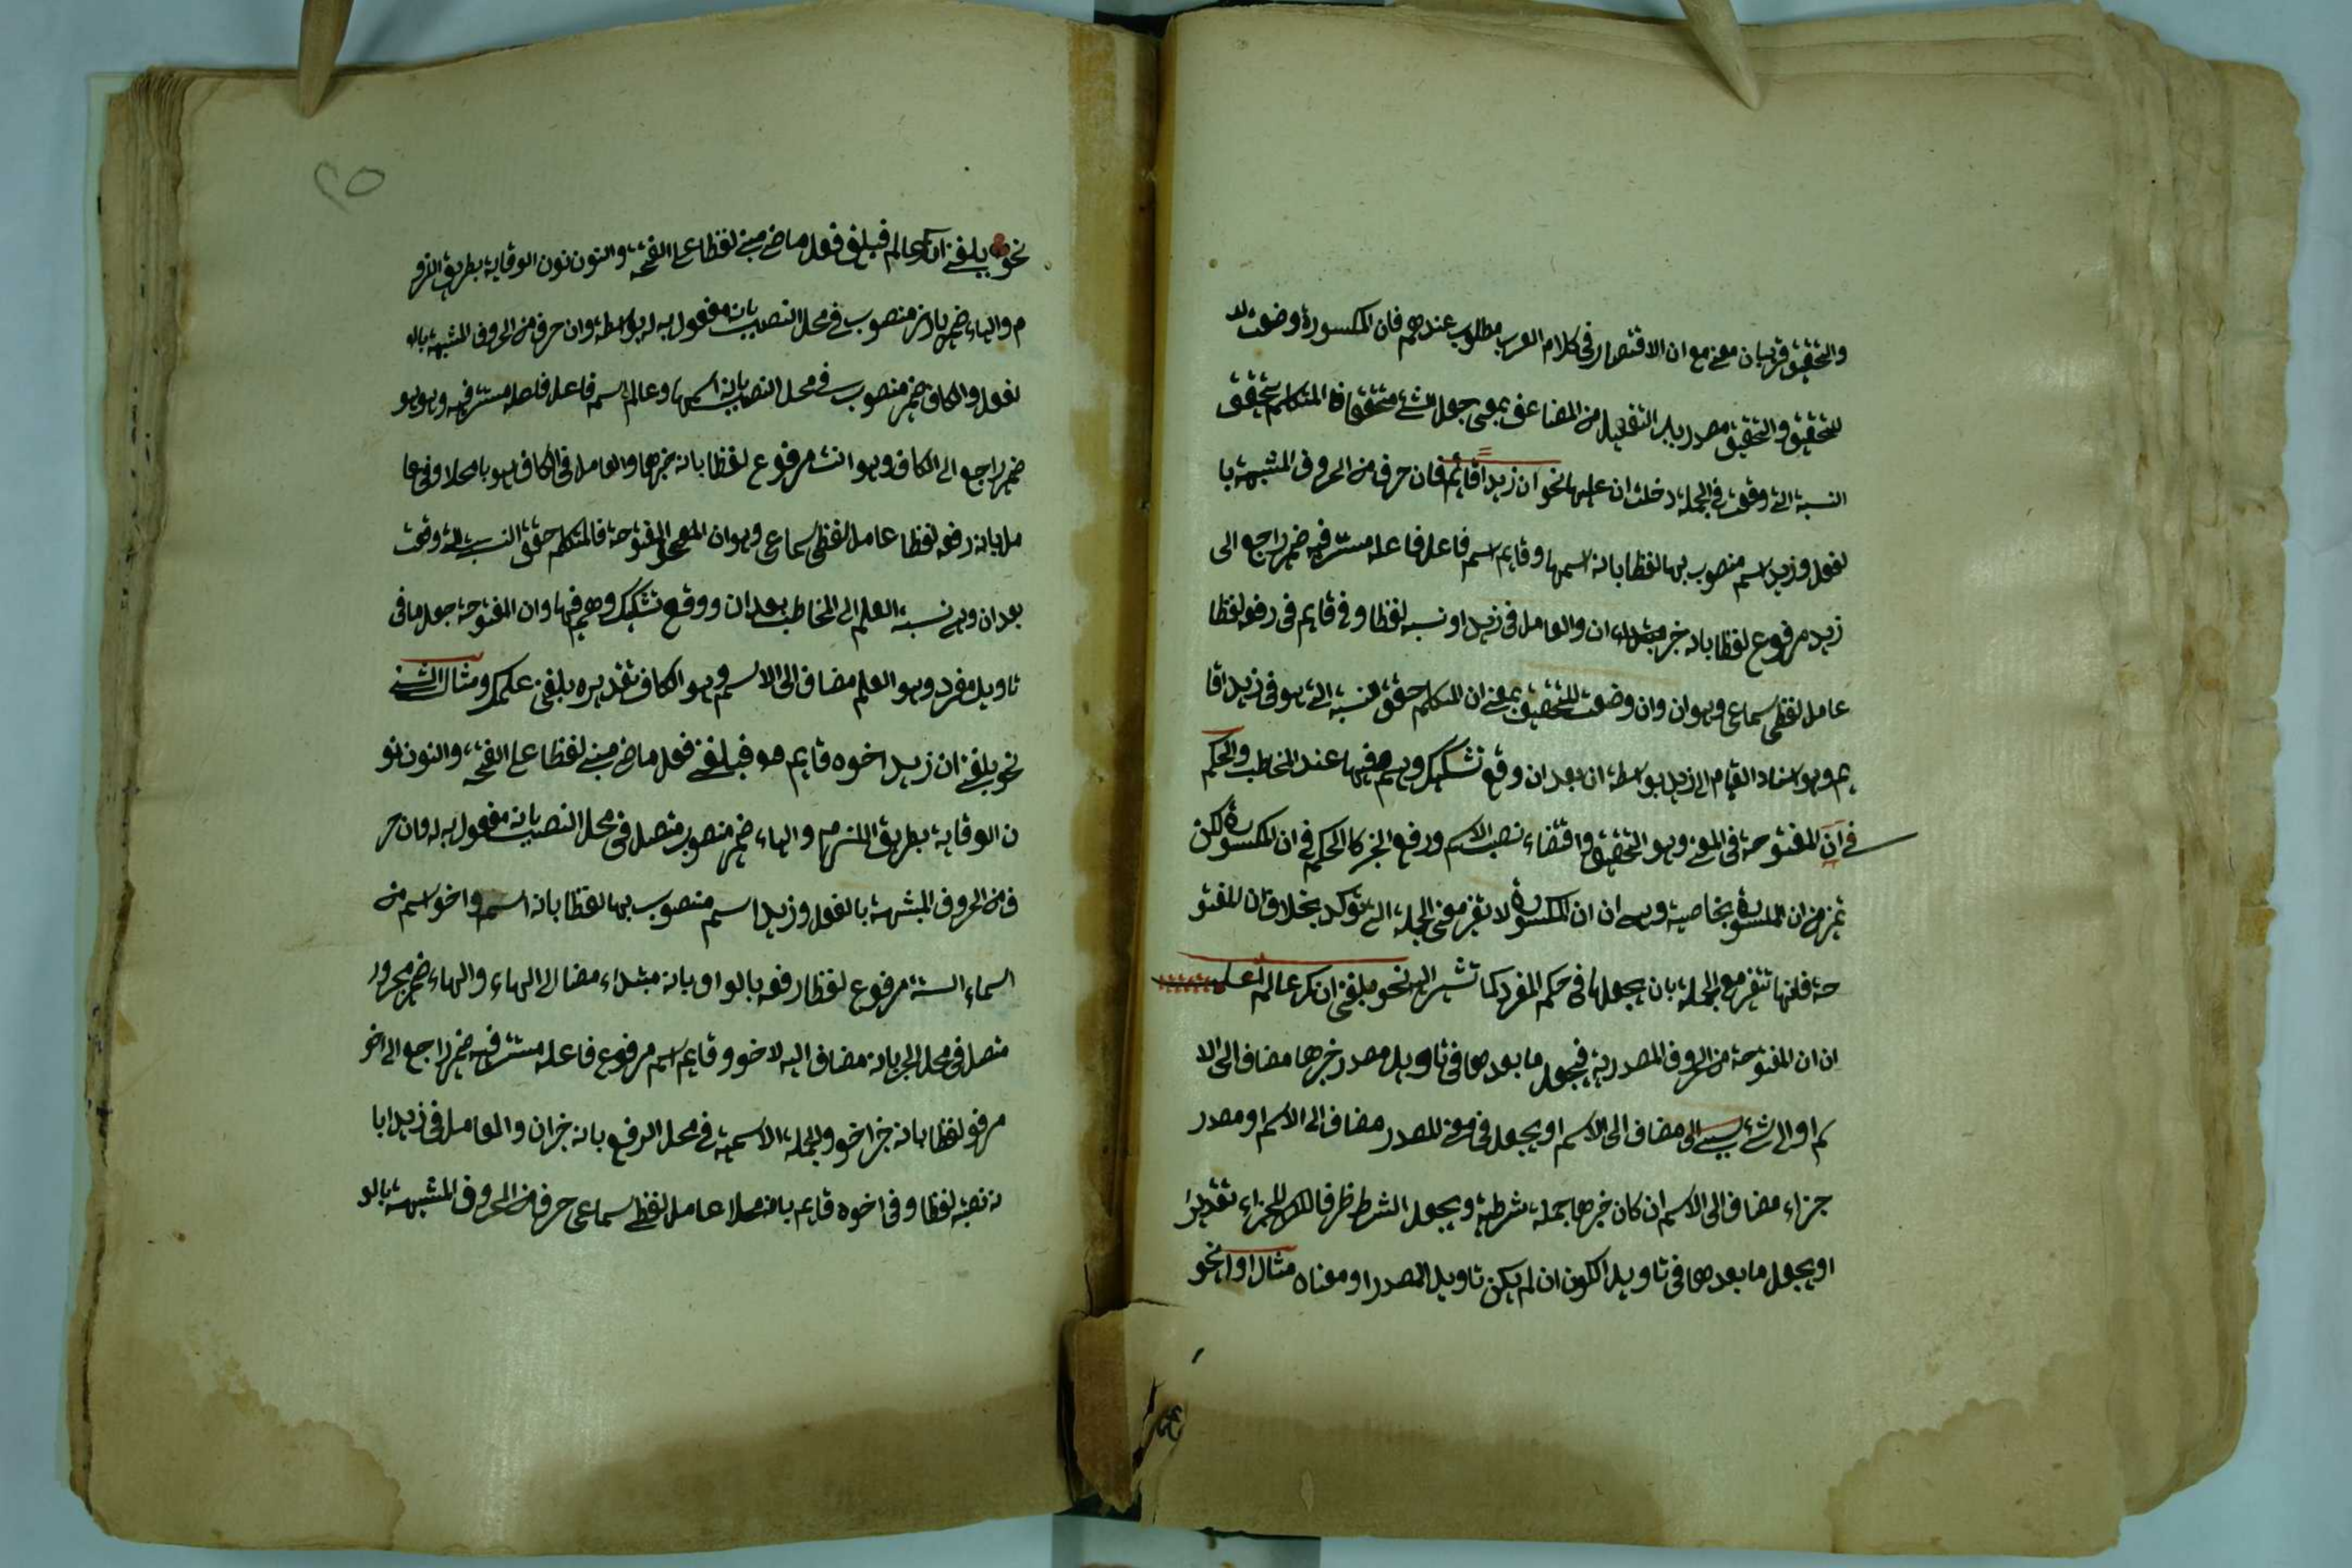 والتحقيق قريبان معنى مع ان الاقتصار في كلام العرب مطلوب عندهم فان المكسورة وضعت لد
للتحقيق والتحقيق مصدر باب التفعيل من المضاعف بمعنى جعل الشئ متحققا فا المتكلم يتحقق
النسبة التي وقعت في الجملة دخلت ان عليها نحو ان زيدا قائم فان حرف من الحروف المشبهة با
لفعل وزيد اسم منصوب بها لفظا بانه اسمها وقايم اسم فاعل فاعله مستتر فيه ضمير راجع الى
زيد مرفوع لفظا بانه خبر ان والعامل في زيدا ونسبه لفظا وفي قايم في رفعه لفظا
عامل لفظي سماعي وهو ان وان وضعت للتحقيق بمعنى ان المتكلم حقق نسبة التي هو في زيد اقا
يم وهو اسناد القيام الى زيد بواسطة ان بعد ان وقع تشكيك وهم فيها عند المخاطب والحكم
في ان المفتوحة في المعنى وهو التحقيق واقتضاء نصب الاسم ورفع الخبر كالحكم في ان المكسورة لكن
تميز من ان المكسورة بخاصية وهى ان ان المكسورة لا تغير معنى الجملة التي توكد بخلاف ان المفتو
حة فانها تتغير مع الجملة بان يجعلها في حكم المفرد كما تشير اليه نحو بلغني انك عالم اعلم
ان ان المفتوحة من الحروف المصدرية فيجعل ما بعدها في تاويل مصدر خبرها مضاف الى الا
سم او الى شئ مضاف الى الاسم او يجعل في معنى المصدر مضاف الى الاسم او مصدر
جزاء مضاف الى الاسم ان كان خبرها جملة شرطية ويجعل الشرط ظرفا للجزاء تقديرا
او يجعل ما بعدها في تاويل الكون ان لم يكن تاويل المصدر او معناه مثال اول نحو
٢٥
نحو بلغني انك عالم فبلغ فعل ماض مبنى لفظا على الفتحة والنون نون الوقاية بطريق اللزو
م والياء ضمير بارز منصوب في محل النصب بانه مفعول به له بواسطة وان حرف من الحروف المشبهة بال
لفعل والكاف ضمير منصوب في محل النصب بانه اسمها وعالم اسم فاعل فاعله مستتر فيه وهو هو
ضمير راجع الى الكاف وهو انت مرفوع لفظا بانه خبرها والعامل في الكاف نصبه محلا وفي عا
مل بانه رفعه لفظا عامل لفظي سماعي وهو ان المفتوحة فالمتكلم حقق النسبة التي وقعت
بعد ان وهى نسبة العلم الى المخاطب بعد ان ووقع تشكيك وهم فيها وان المفتوحة جعل ما في
تاويل مفرد وهو العلم مضاف الى الاسم وهو الكاف تقديره بلغني علمك ومثال الثاني
نحو بلغني ان زيد اخوه قايم هو فبلغ فعل ماض مبنى لفظا على الفتحة والنون نو
ن الوقاية بطريق اللزوم والياء ضمير منصوب متصل في محل النصب بانه مفعول به له وان حر
ف من الحروف المشبهة بالفعل وزيدا اسم منصوب بها لفظا بانه اسم واخو اسم من
اسماء الستة مرفوع لفظا رفعه بالواو بانه مبتداء مضاف الى الهاء والهاء ضمير مجرور
متصل في محل الجر بانه مضاف اليه لاخو وقايم اسم مرفوع فاعله مستتر فيه ضمير راجع الى اخو
مرفوع لفظا بانه خبر اخو والجملة الاسمية في محل الرفع بانه خبر ان والعامل في زيد ابا
نه نصبه لفظا وفي اخوه قايم بانه محلا عامل لفظي سماعي حرف من الحروف المشبهة بالو